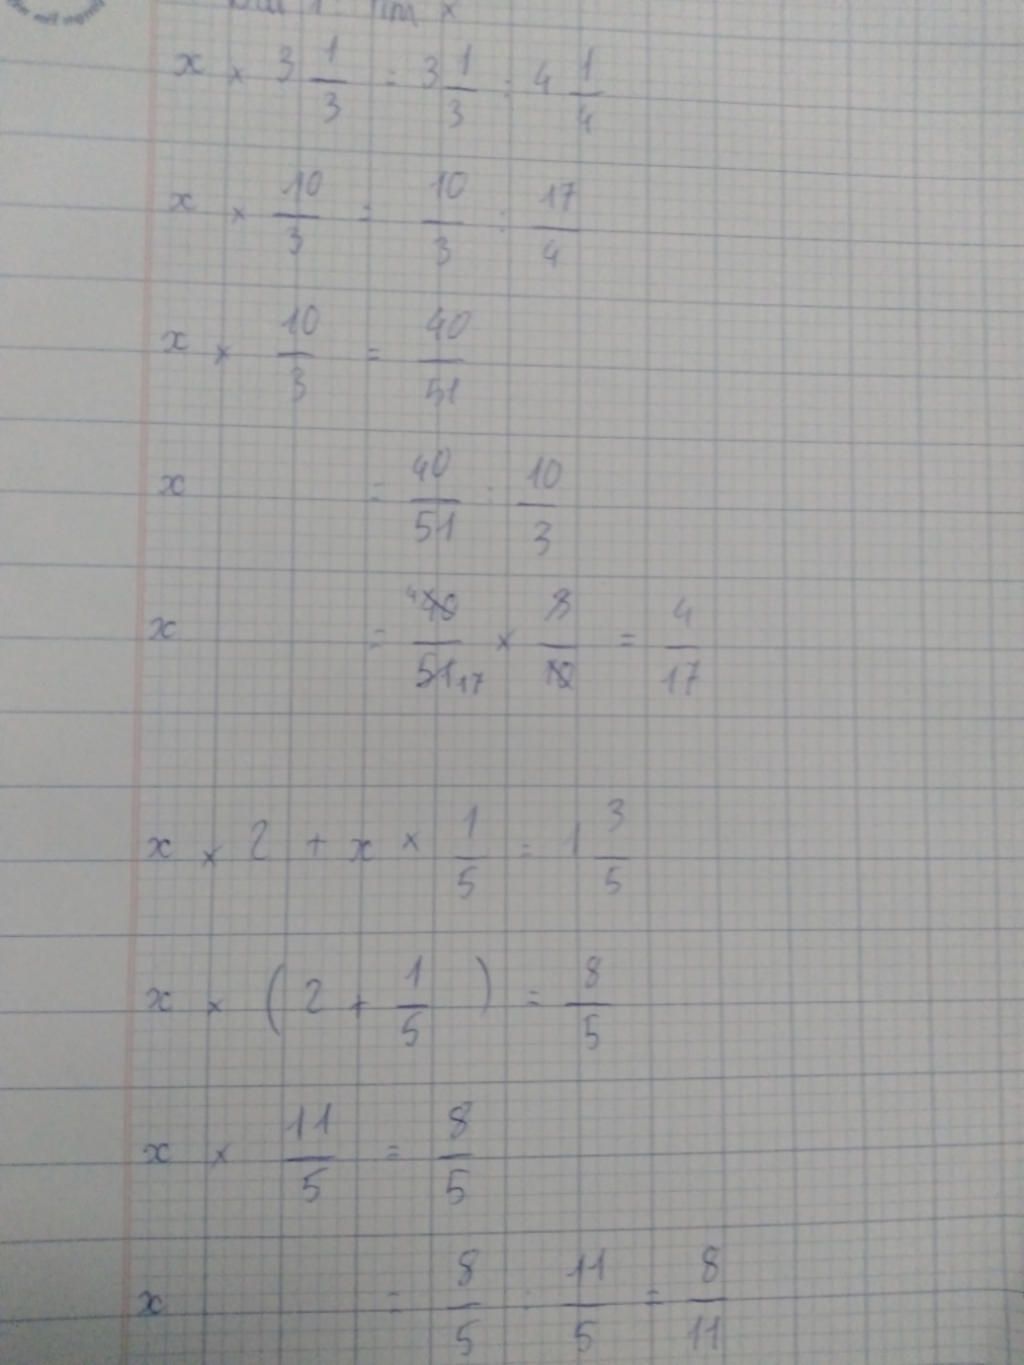 x × 3 1/3 = 3 1/3 : 4 1/4
x × 10/3 = 10/3 : 17/4
x × 10/3 = 40/51
x = 40/51 : 10/3
x = 40/51 × 3/10 = 4/17
x × 2 + x × 1/5 = 1 3/5
x × (2 + 1/5) = 8/5
x × 11/5 = 8/5
x = 8/5 : 11/5 = 8/11